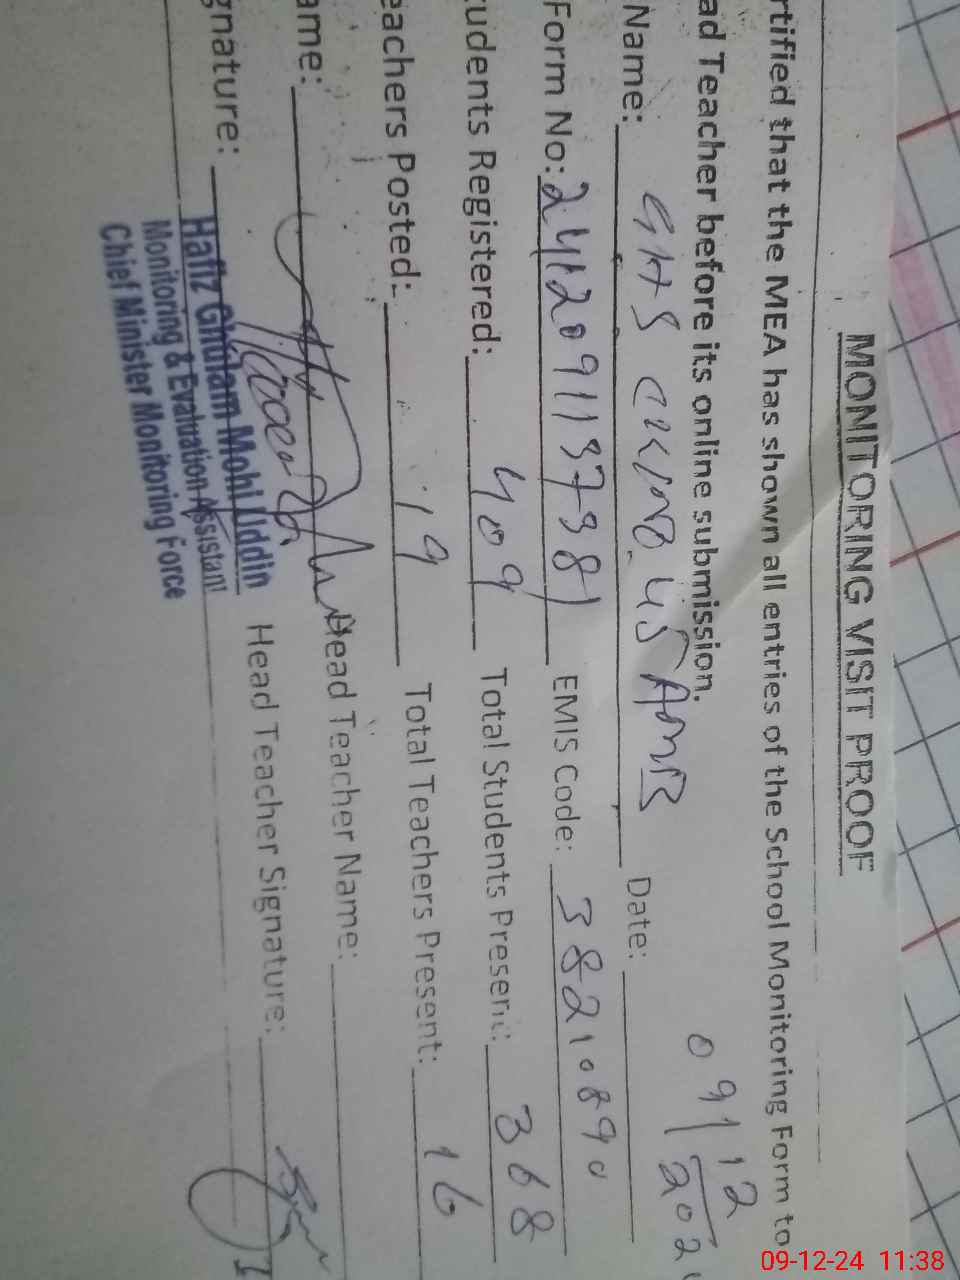 MONITORING VISIT PROOF
rtified that the MEA has shown all entries of the School Monitoring Form to
ad Teacher before its online submission.
Name: GHS CHK NO. 45 AMB Date: 09/12/202
Form No: 2412091137381 EMIS Code: 38210890
tudents Registered: 409 Total Students Present: 368
eachers Posted: 19 Total Teachers Present: 16
ame: Head Teacher Name:
gnature: Head Teacher Signature:
Hafiz Ghulam Mohi Uddin
Monitoring & Evaluation Assistant
Chief Minister Monitoring Force
09-12-24 11:38